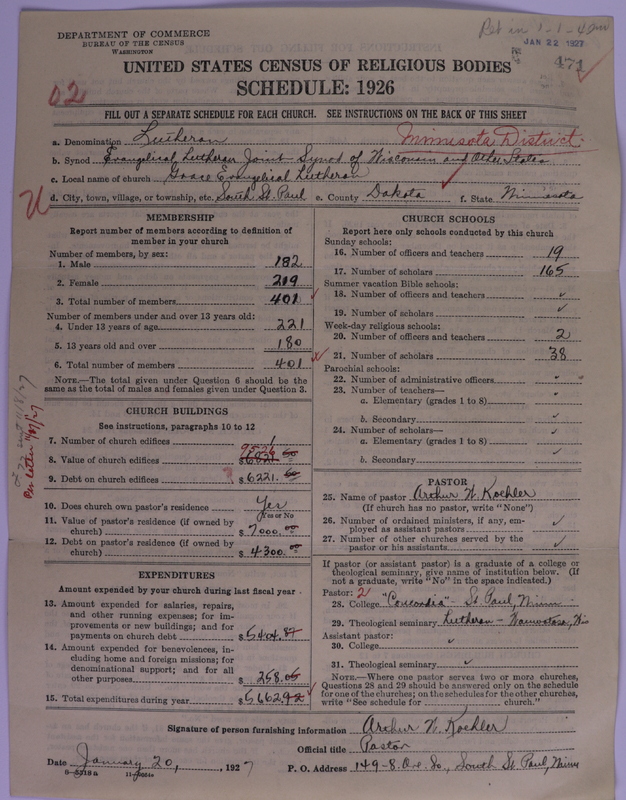 DEPARTMENT OF COMMERCE
BUREAU OF THE CENSUS
WASHINGTON
JAN 22 1927
471
UNITED STATES CENSUS OF RELIGIOUS BODIES
SCHEDULE: 1926
02
FILL OUT A SEPARATE SCHEDULE FOR EACH CHURCH. SEE INSTRUCTIONS ON THE BACK OF THIS SHEET
Minnesota District
a. Denomination Lutheran
b. Synod Evangelical Lutheran Joint Synod of Wisconsin and Other States
c. Local name of church Grace Evangelical Lutheran
d. City, town, village, or township, etc. South St. Paul e. County Dakota f. State Minnesota
MEMBERSHIP
Report number of members according to definition of member in your church
Number of members, by sex:
1. Male 182
2. Female 219
3. Total number of members 401
Number of members under and over 13 years old:
4. Under 13 years of age 221
5. 13 years old and over 180
6. Total number of members 401
NOTE.—The total given under Question 6 should be the same as the total of males and females given under Question 3.
CHURCH BUILDINGS
See instructions, paragraphs 10 to 12
7. Number of church edifices 1
8. Value of church edifices $
9. Debt on church edifices $6221.00
10. Does church own pastor's residence Yes
(Yes or No)
11. Value of pastor's residence (if owned by church) $7000.00
12. Debt on pastor's residence (if owned by church) $4300.00
EXPENDITURES
Amount expended by your church during last fiscal year
13. Amount expended for salaries, repairs, and other running expenses; for improvements or new buildings; and for payments on church debt $5404.87
14. Amount expended for benevolences, including home and foreign missions; for denominational support; and for all other purposes $258.05
15. Total expenditures during year $5662.92
CHURCH SCHOOLS
Report here only schools conducted by this church
Sunday schools:
16. Number of officers and teachers 19
17. Number of scholars 165
Summer vacation Bible schools:
18. Number of officers and teachers ✓
19. Number of scholars ✓
Week-day religious schools:
20. Number of officers and teachers 2
21. Number of scholars 38
Parochial schools:
22. Number of administrative officers ✓
23. Number of teachers—
a. Elementary (grades 1 to 8) ✓
b. Secondary ✓
24. Number of scholars—
a. Elementary (grades 1 to 8) ✓
b. Secondary ✓
PASTOR
25. Name of pastor Arthur W. Koehler
(If church has no pastor, write "None")
26. Number of ordained ministers, if any, employed as assistant pastors ✓
27. Number of other churches served by the pastor or his assistants ✓
If pastor (or assistant pastor) is a graduate of a college or theological seminary, give name of institution below. (If not a graduate, write "No" in the space indicated.)
Pastor: 2
28. College "Concordia" - St. Paul, Minn
29. Theological seminary Lutheran - Wauwatosa, Wis
Assistant pastor:
30. College ✓
31. Theological seminary ✓
NOTE.—Where one pastor serves two or more churches, Questions 28 and 29 should be answered only on the schedule for one of the churches; on the schedules for the other churches, write "See schedule for church."
Signature of person furnishing information Arthur W. Koehler
Official title Pastor
Date January 20, 1927
P. O. Address 149-8. Ave So., South St. Paul, Minn